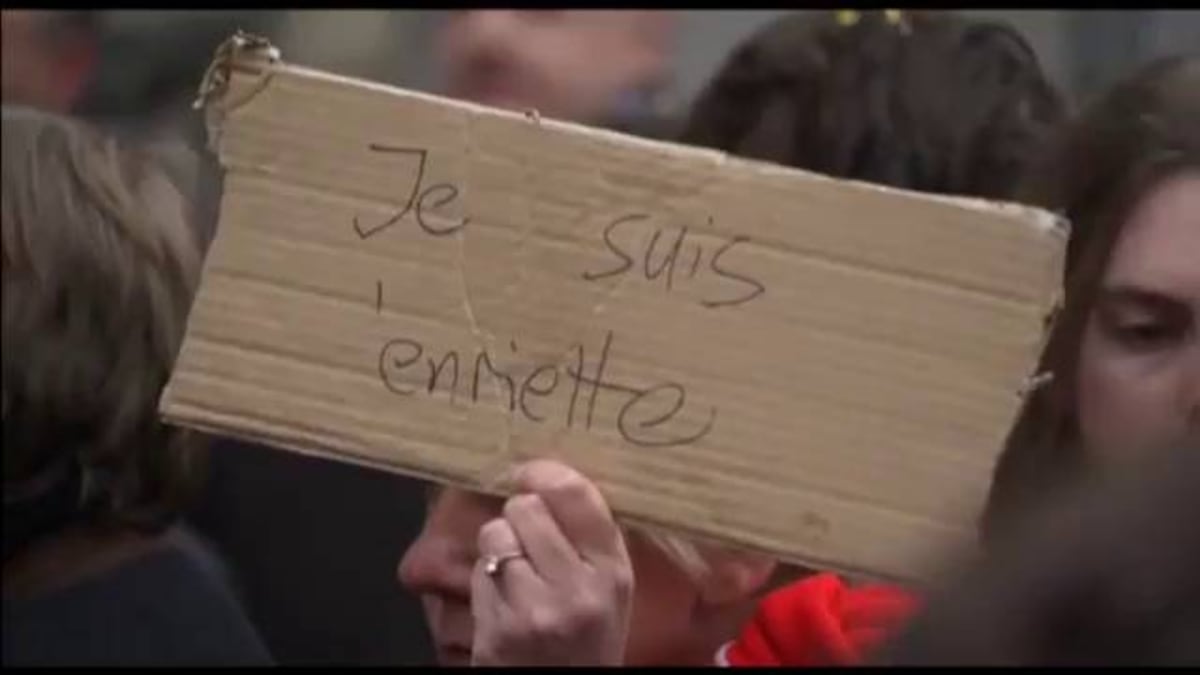 Je suis
'enriette